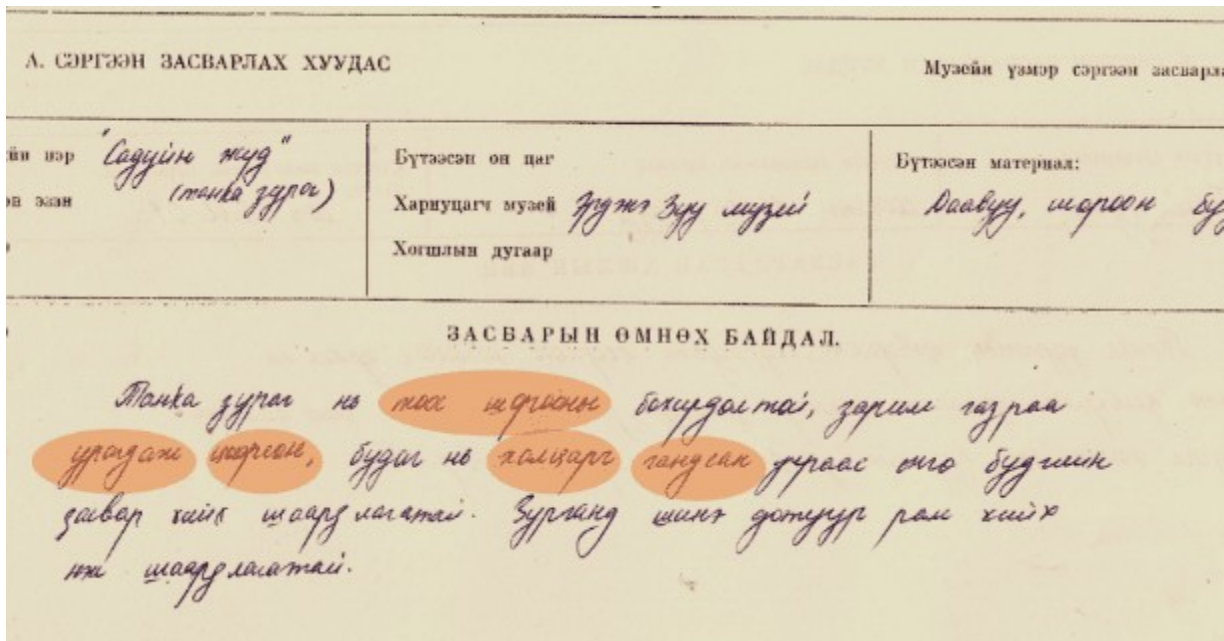 А. СЭРГЭЭН ЗАСВАРЛАХ ХУУДАС
Музейн үзмэр сэргээн засварла
йн нэр "Садуйн жуд"
(танка зураг)
эзэн
Бүтээсэн он цаг
Хариуцагч музей Эрдэнэ Зуу музей
Хөгшлын дугаар
Бүтээсэн материал:
Даавуу, шороон бу
ЗАСВАРЫН ӨМНӨХ БАЙДАЛ.
Танка зураг нь тос шорооны бохирдолтой, зарим газраа
урагдаж цоорсон, будаг нь холцарч гандсан учраас өнгө будгийн
засвар хийх шаардлагатай. Зурганд шинэ дотуур рам хийх
нь шаардлагатай.